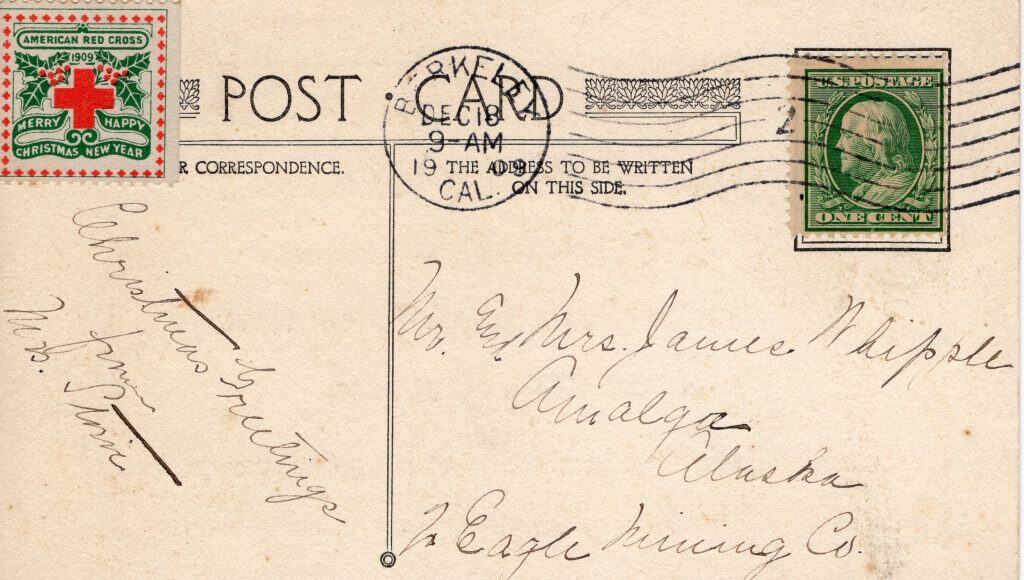 AMERICAN RED CROSS
1909
MERRY HAPPY
CHRISTMAS NEW YEAR
POST CARD
BERKELEY
DEC 18
9-AM
1909
CAL.
2
U.S. POSTAGE
ONE CENT
R CORRESPONDENCE.
THE ADDRESS TO BE WRITTEN
ON THIS SIDE.
Christmas Greetings
from
Mrs.
Mr. and Mrs. James Whipple
Amalga
Alaska
Eagle Mining Co.